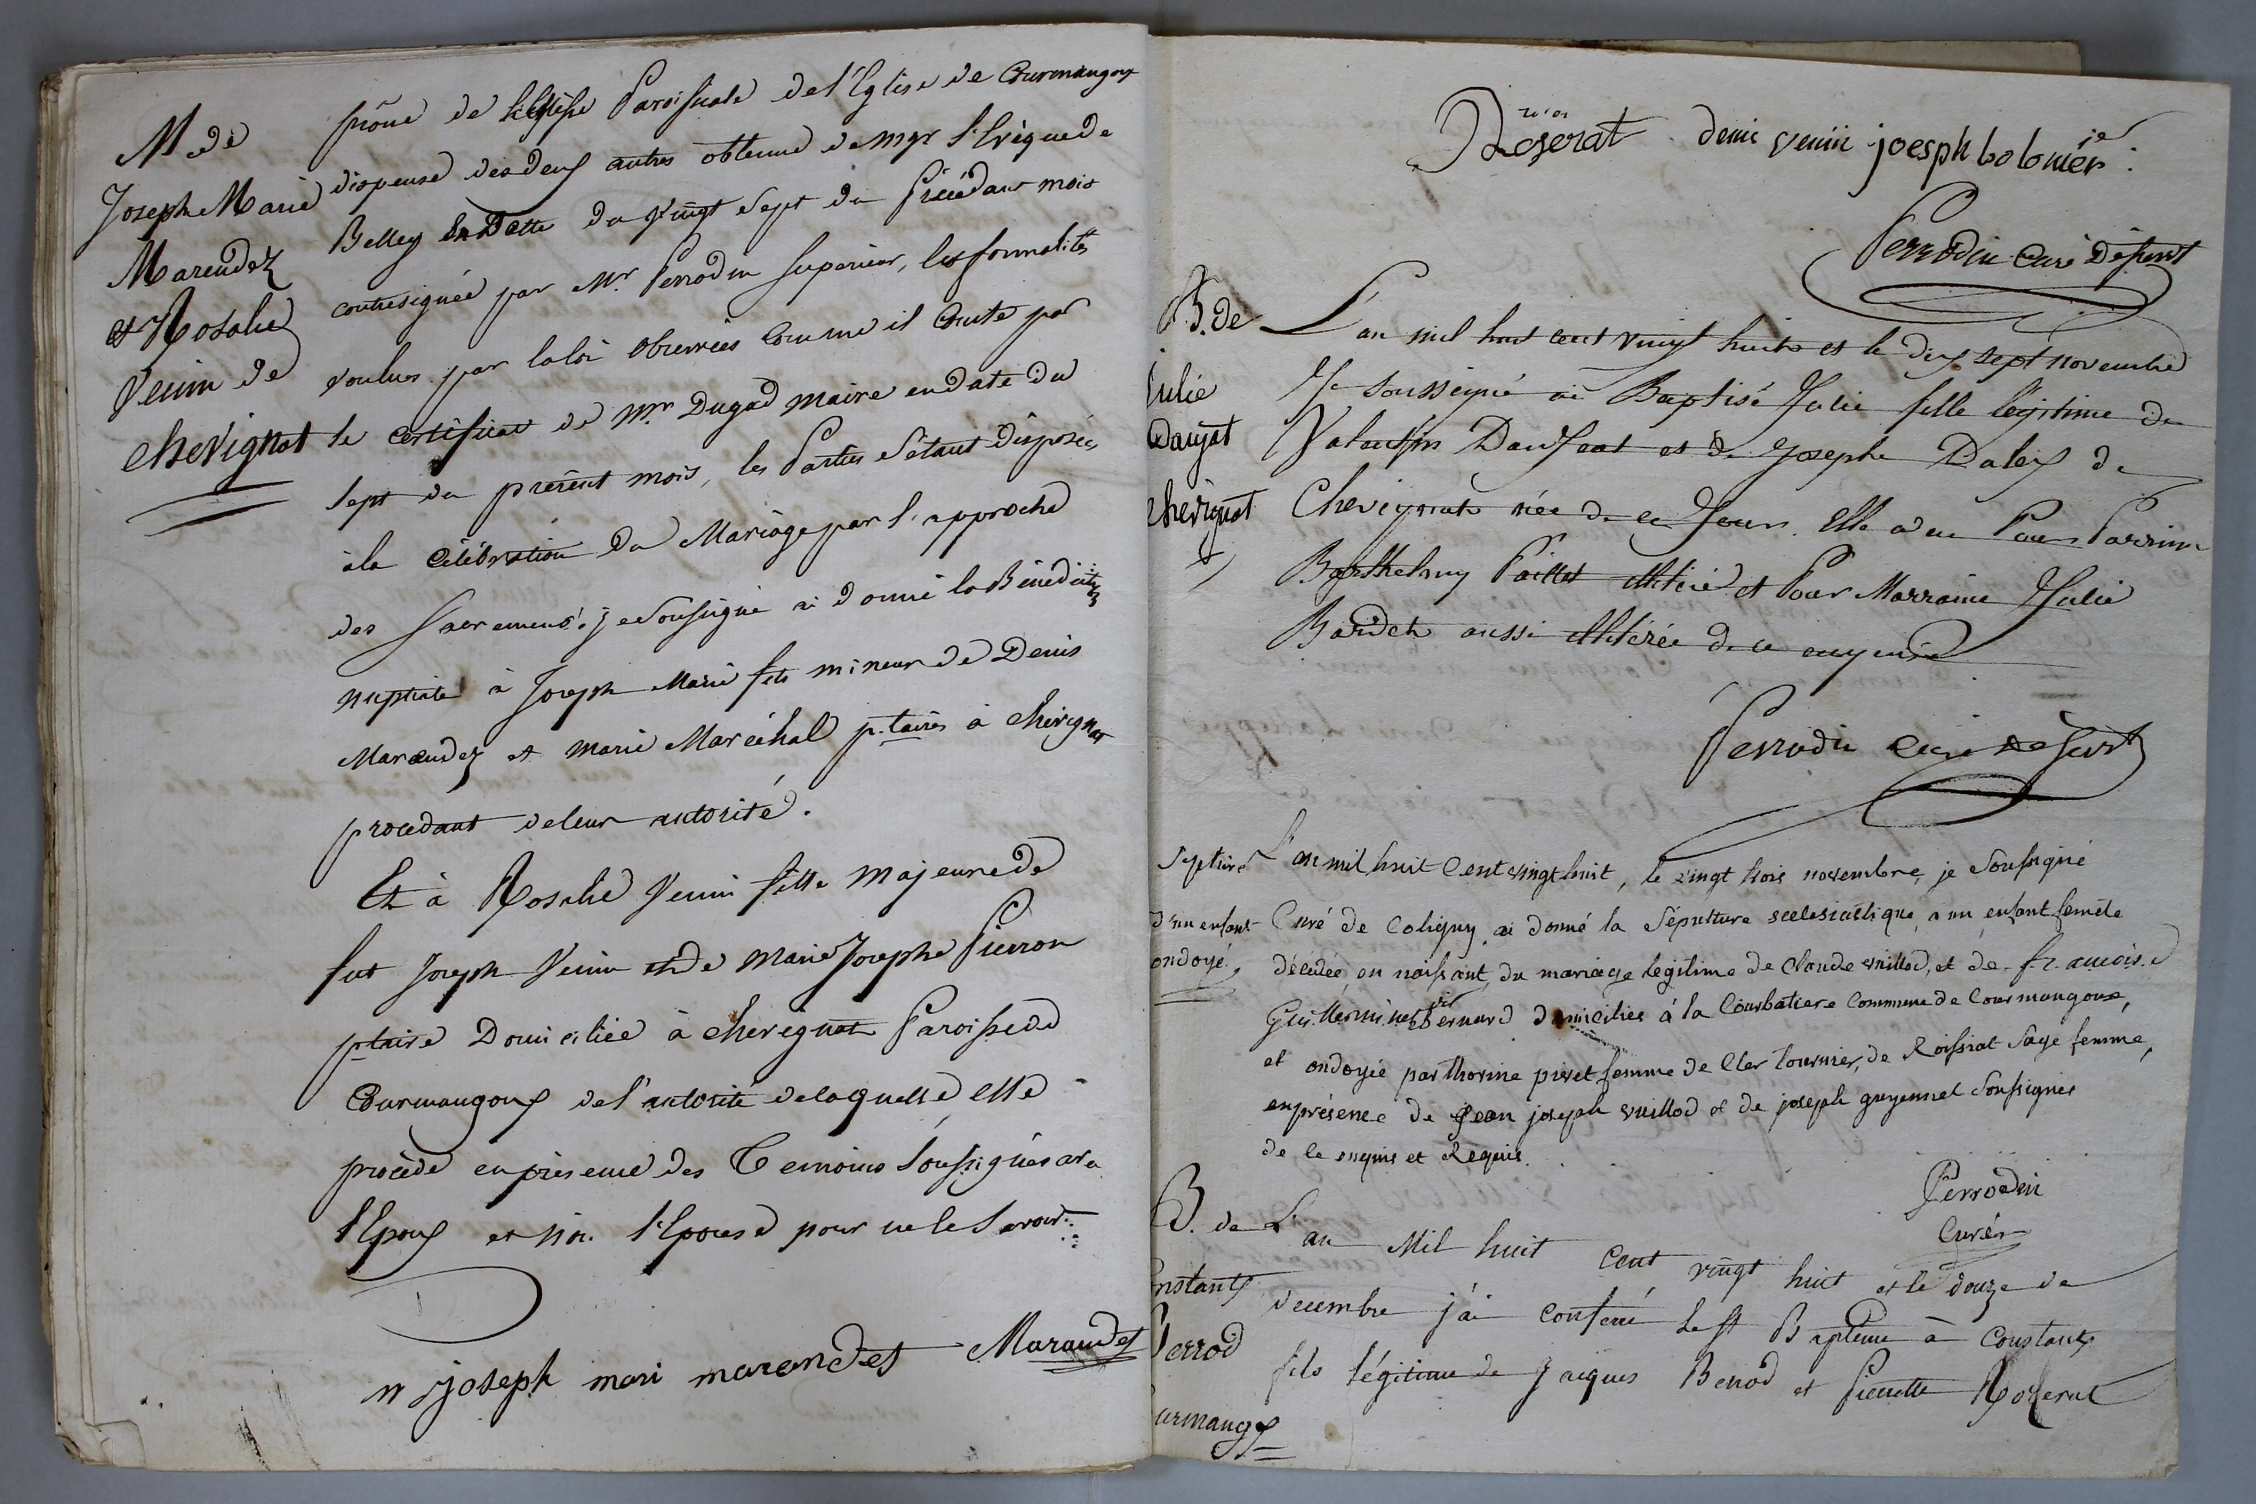 M de
Joseph Marie
Marendez
et Rosalie
Venin de
chevignat
prône de Paroissiale de l'Eglise de Courmangoux
dispense des deux autres obtenue de Mgr l'Evêque de
Belley En Datte du vingt Sept du Précédant mois
contresignée par Mr. Perrodin Superieur, les formalités
voulues par la loi observées Comme il Conste par
le certificat de Mr. Dugad maire en date du
sept du présent mois, les Parties s'étant disposées
à la Célébration du Mariage par l'approche
des Sacremens; je soussigné ai donné la Bénédiction
nuptiale à Joseph Marie fils mineur de Denis
Marendez et Marie Maréchal p.taires à chevignat
procedant de leur autorité.
Et à Rosalie Venin fille majeure de
fut Joseph Venin et de Marie Josephe Pierron
ptaire Domiciliée à chevignat Paroisse de
Courmangoux de l'autorité de laquelle elle
procède en présence des Temoins Soussignés avec
l'Epoux et non l'Epouse pour ne le Savoir.
joseph mari marendet Marandet
Roserat denie venin joesph bolomier.
Perrodin Curé Desservt
B. de
Julie
Daujat
chevignat
L'an mil huit cent vingt huit et le dix sept novembre
Je soussigné ai Baptisé Julie fille légitime de
Valentin Daujeat et de Josephe Daleix de
Chevignat née de ce Jour. Elle a eu Pour Parrin
Barthelmy Paillet illitiré et Pour Marraine Julie
Bardet aussi illitérée de ce enquise
Perrodin Curé Desservt
Septure
d'un enfant
ondoyé.
L'an mil huit Cent vingt huit, le vingt trois novembre, je Soussigné
Curé de Coligny, ai donné la Sépulture ecclesiastique à un enfant femèle
décédée en naissant, du mariage légitime de Claude vuillod, et de françoise
Guillermine Bernard domiciliés à la Courbatiere Commune de Courmangoux,
et ondoyée par thorine pivet femme de Cler tournier, de Roissiat Sage femme,
en présence de jean joseph vuillod et de joseph guyennet Soussignés
de le enquis et Requis.
Perrodin
Curé
B. de
Constant
Berrod
Courmangx
L'an Mil huit Cent vingt huit et le douze de
decembre j'ai conferé le st Baptême à Constant
fils légitime de Jaques Benod et Pierrette Roserat